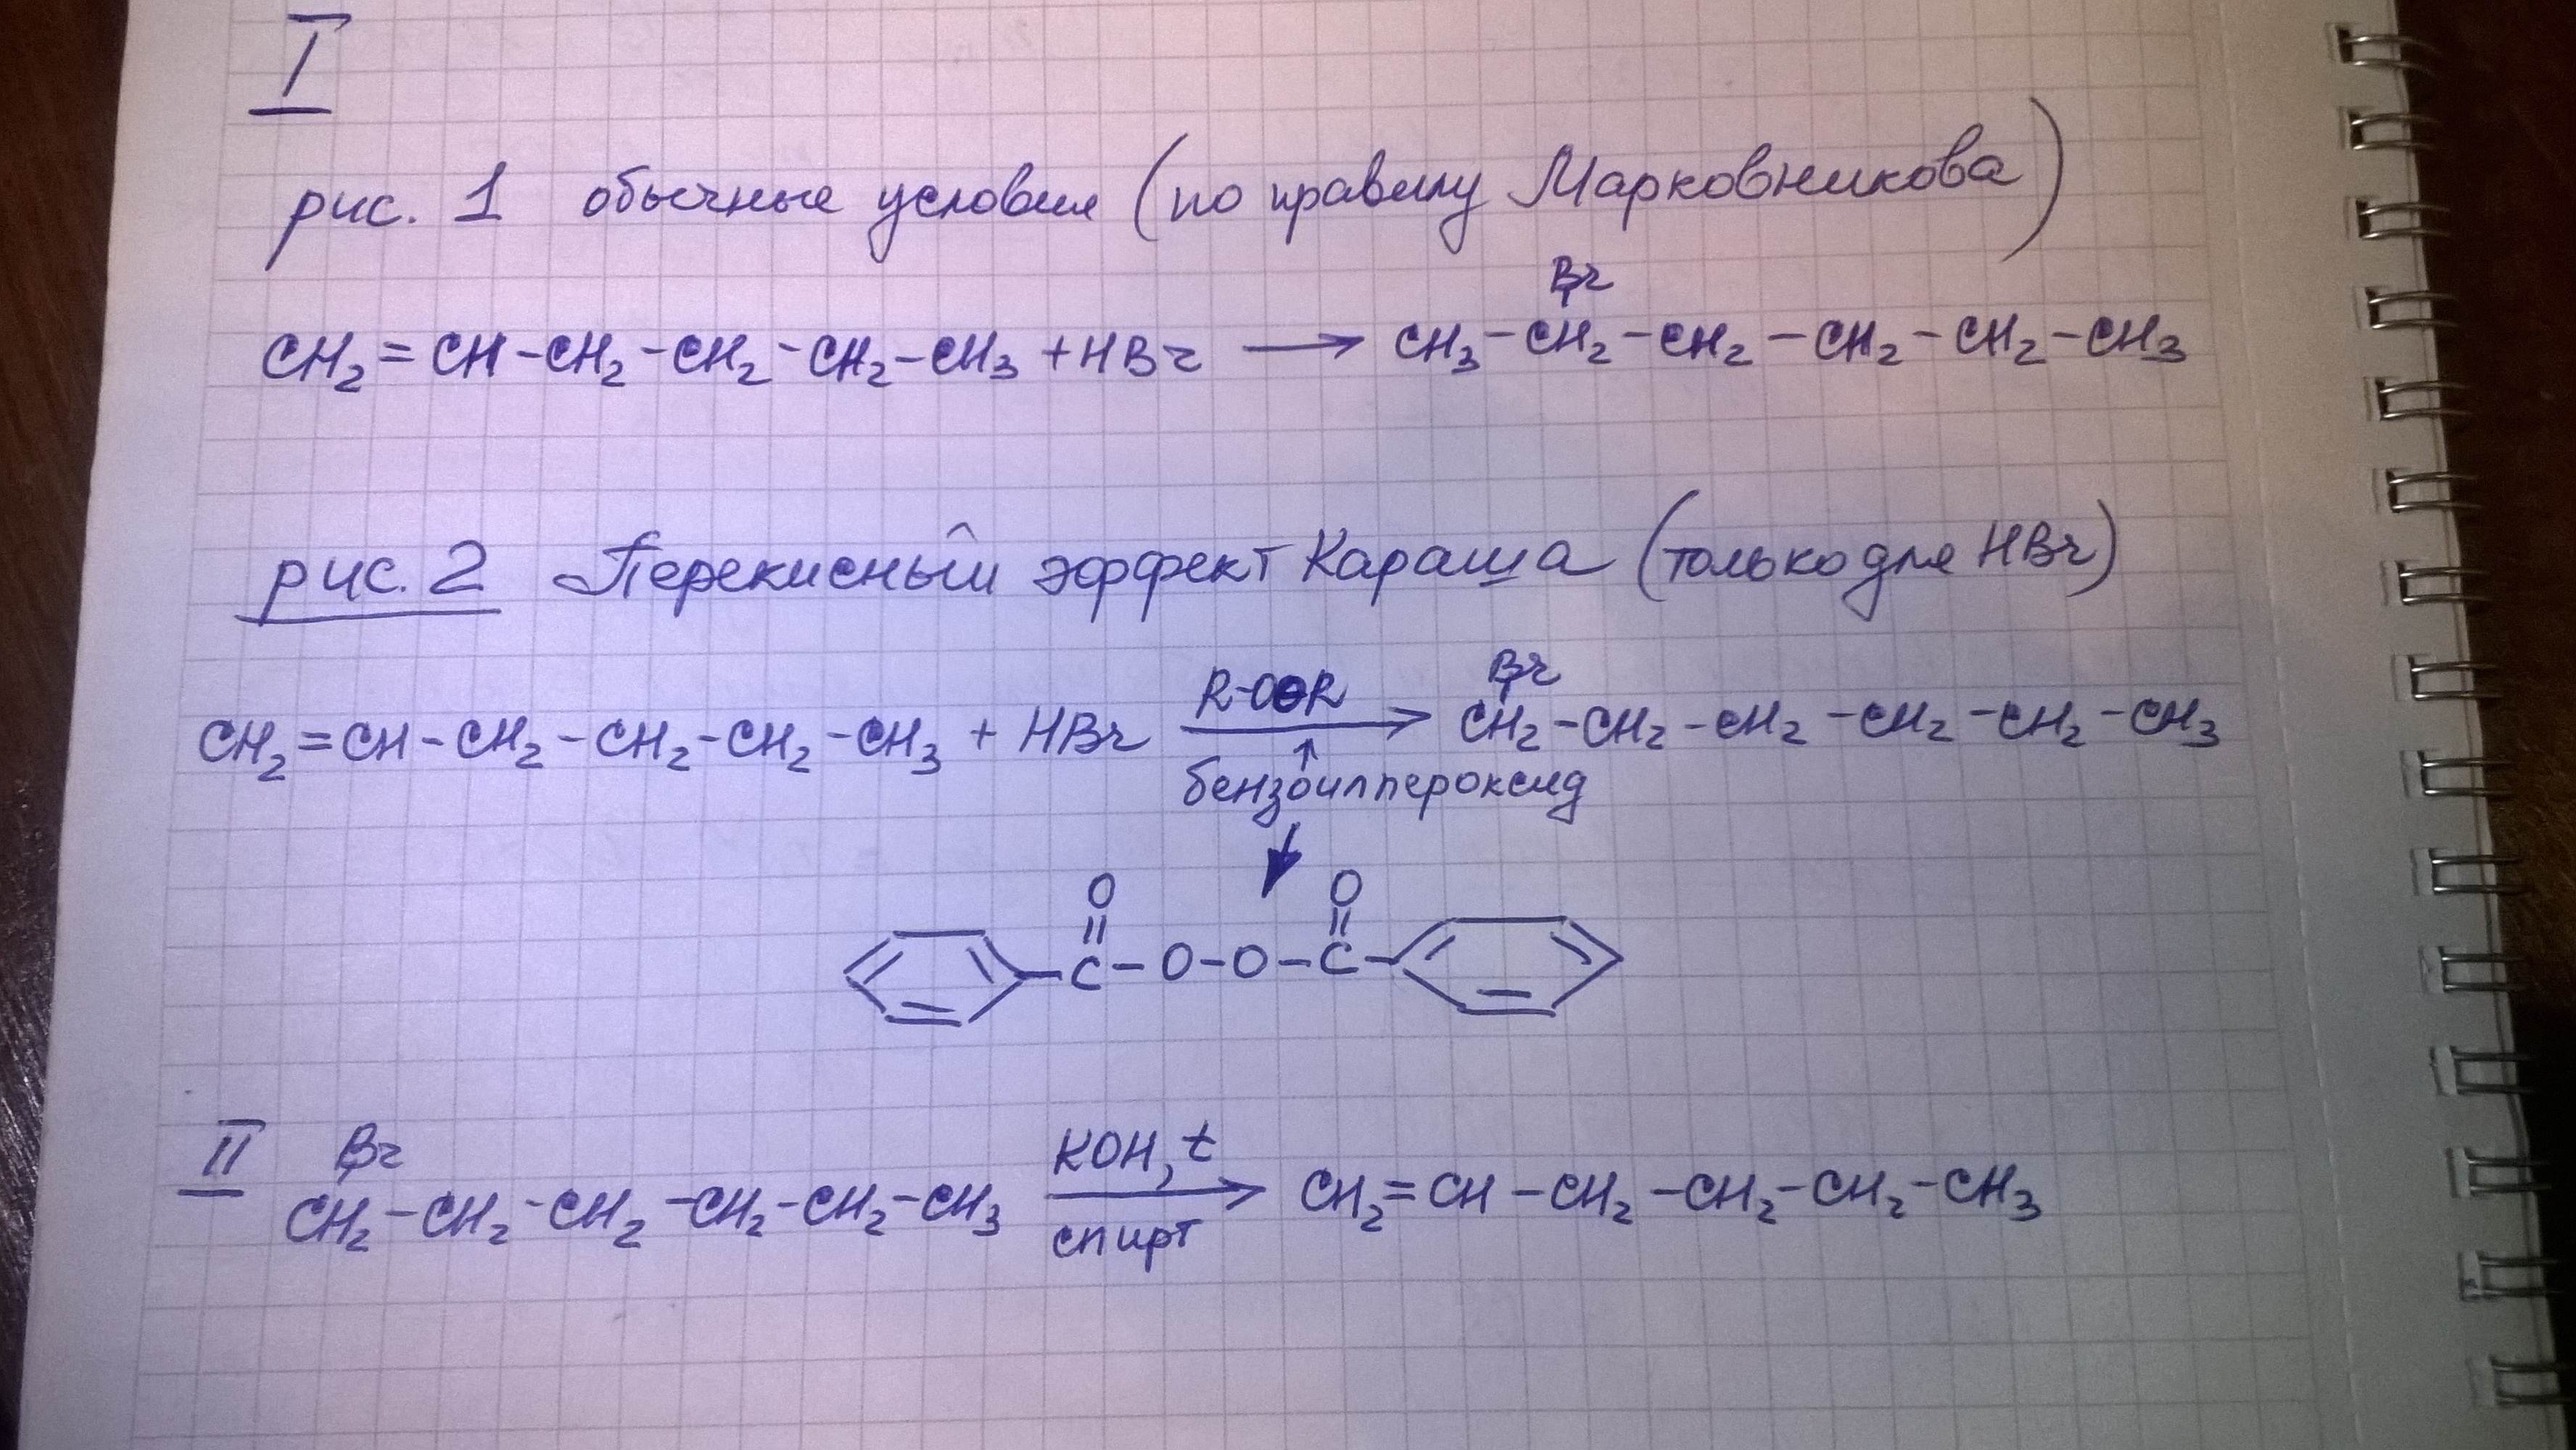 I
рис. 1 обычные условия (по правилу Марковникова)
Br
CH₂=CH-CH₂-CH₂-CH₂-CH₃ + HBr → CH₃-CH₂-CH₂-CH₂-CH₂-CH₃
рис. 2 Перекисный эффект Караша (только для HBr)
R-OOR Br
CH₂=CH-CH₂-CH₂-CH₂-CH₃ + HBr → CH₂-CH₂-CH₂-CH₂-CH₂-CH₃
↑
бензоилпероксид
O O
C-O-O-C
II Br KOH, t
CH₂-CH₂-CH₂-CH₂-CH₂-CH₃ → CH₂=CH-CH₂-CH₂-CH₂-CH₃
спирт